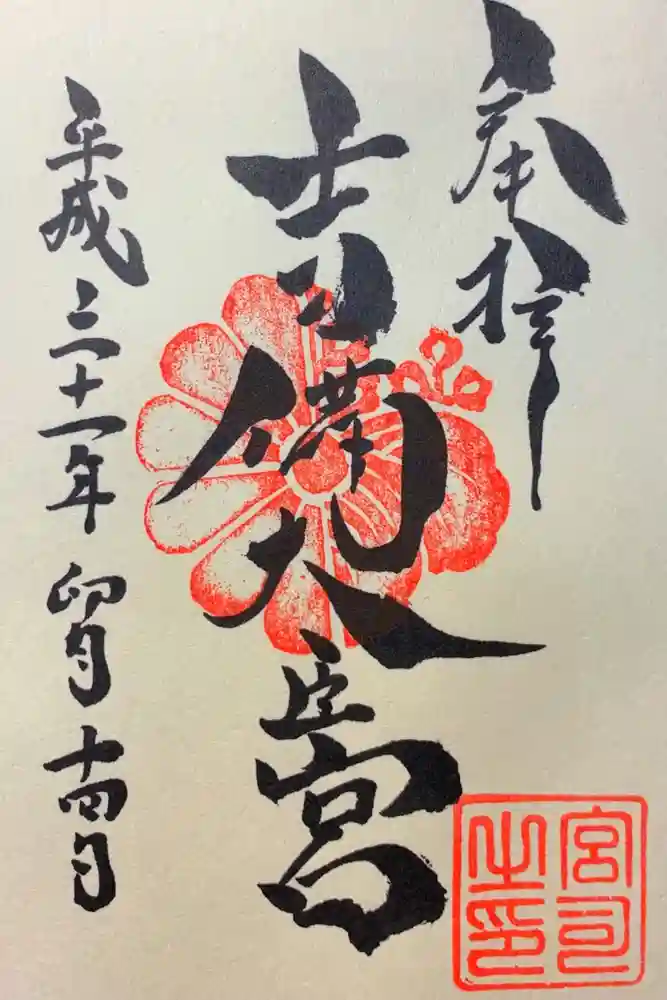 奉拝
吉備大臣宮
平成三十一年 卯月 十四日
宮司
之印